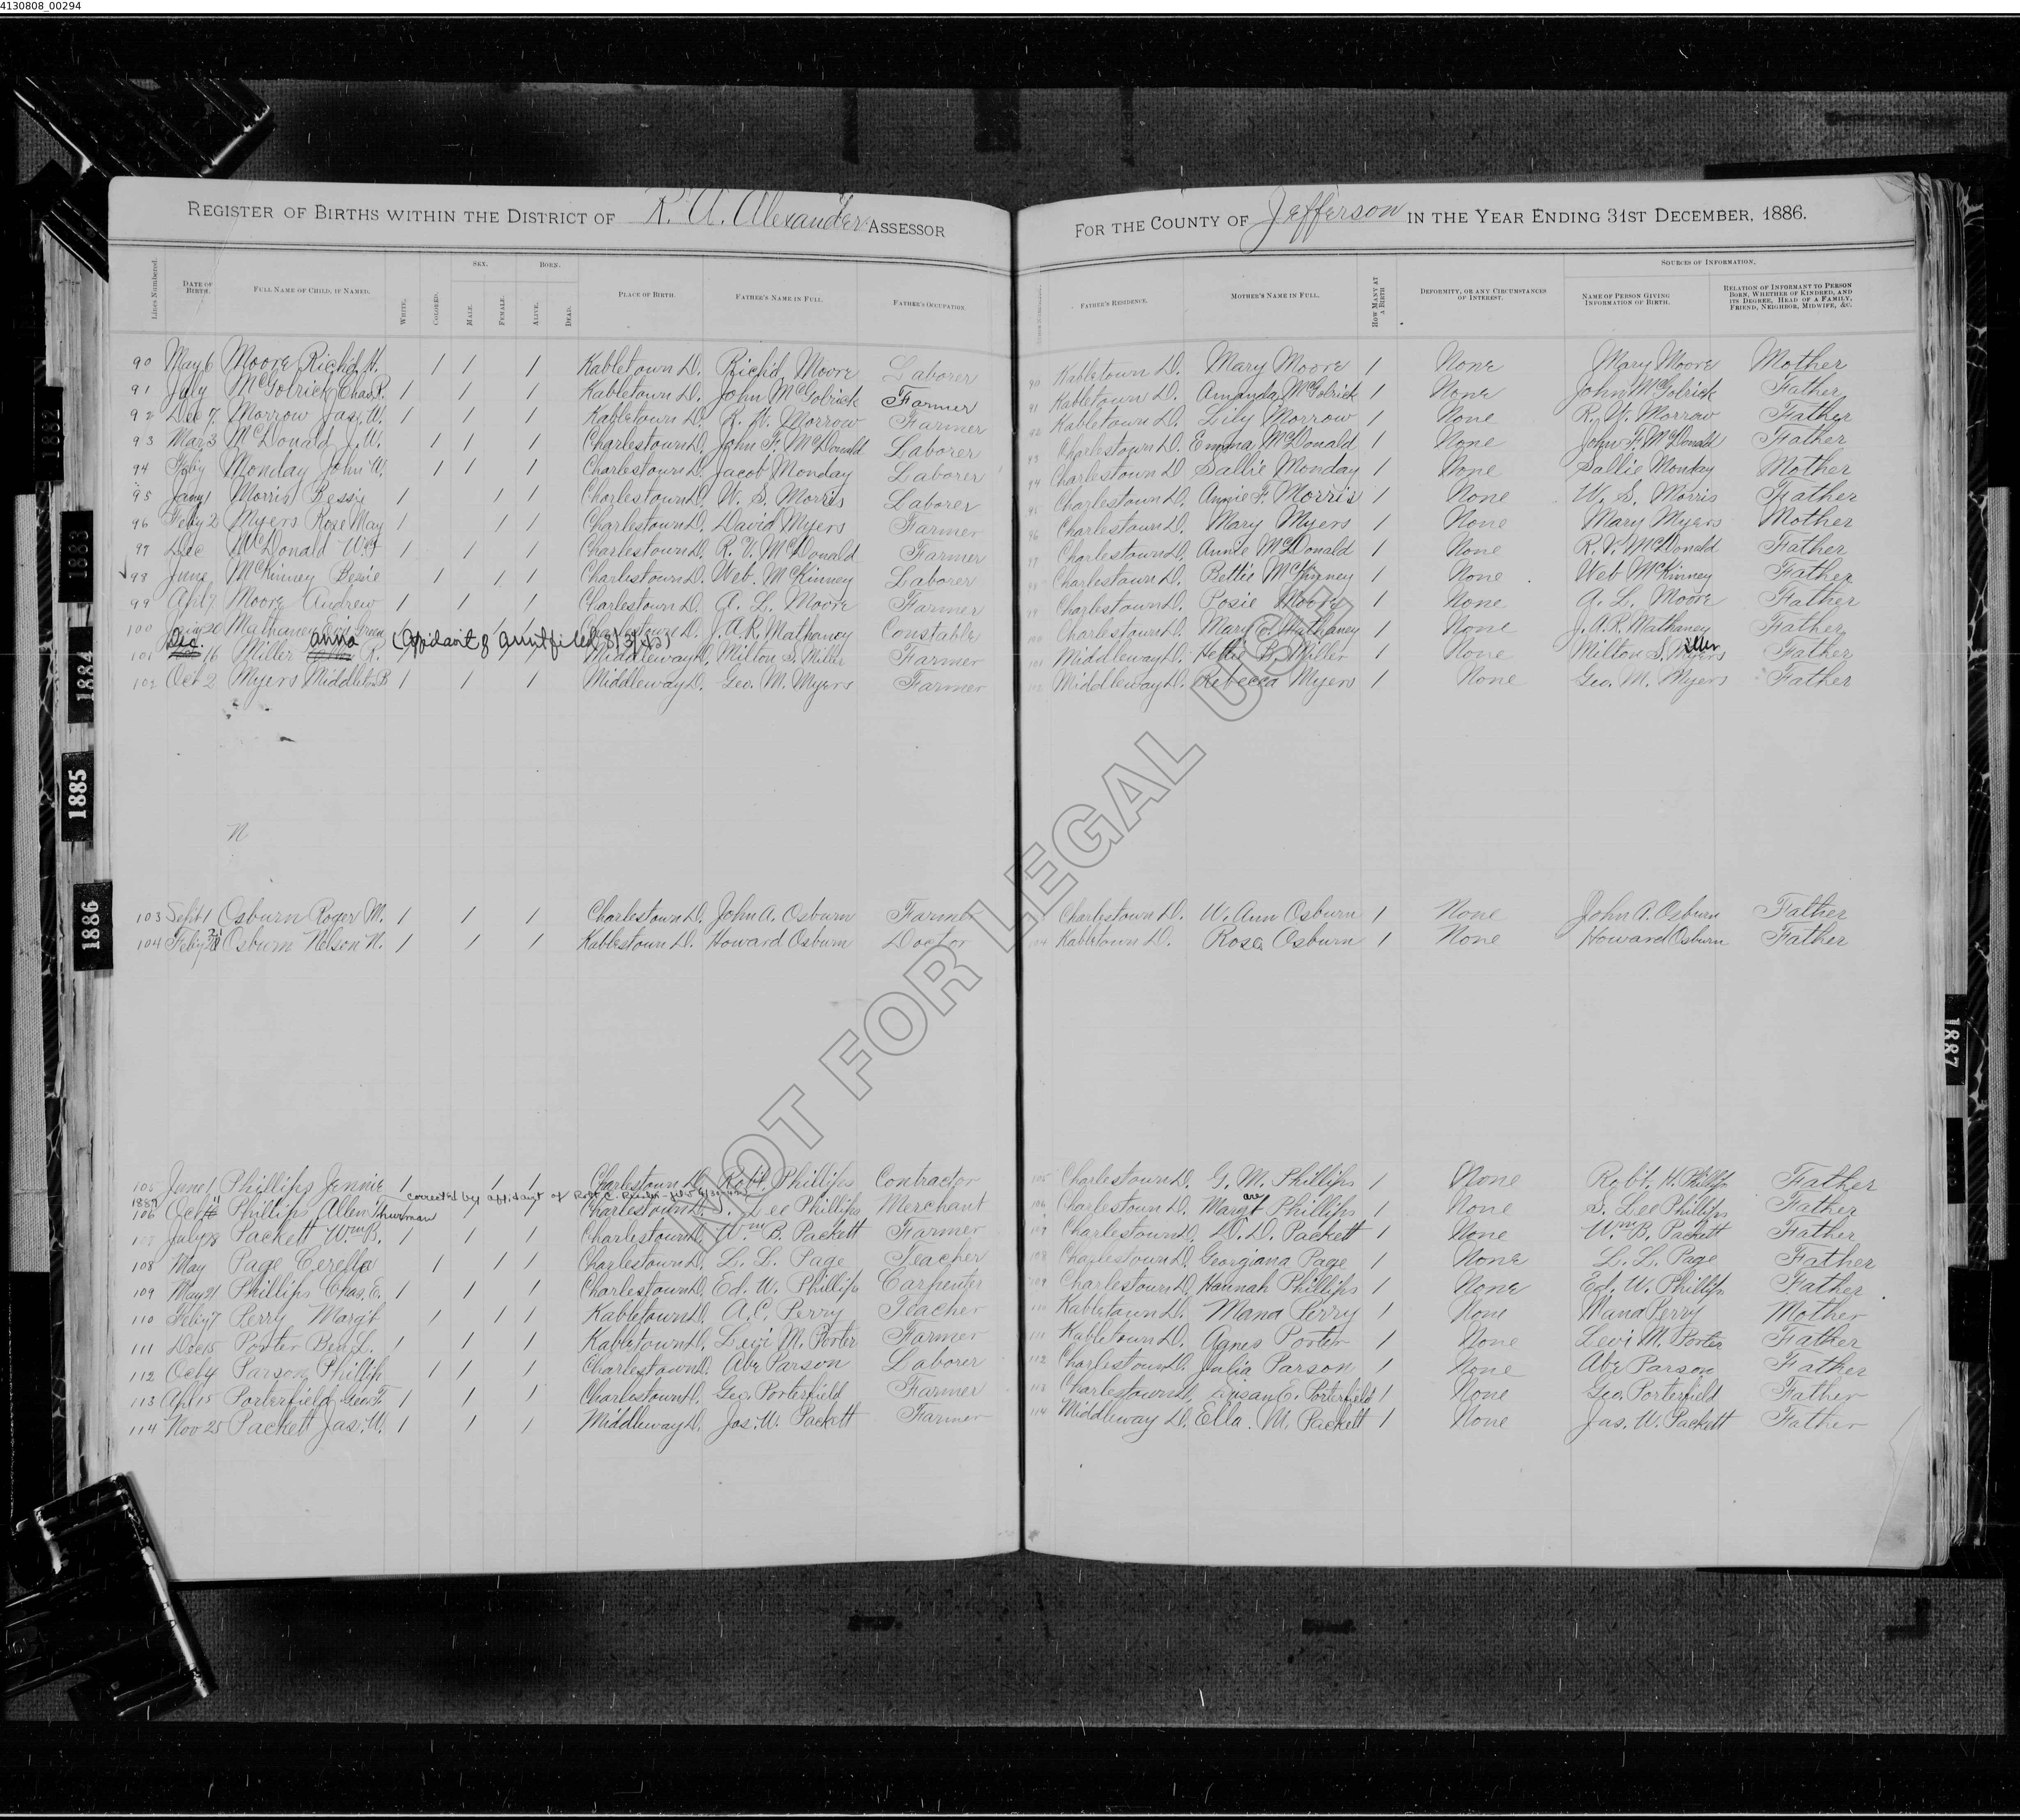 4130808_00294
REGISTER OF BIRTHS WITHIN THE DISTRICT OF R. A. Alexander ASSESSOR FOR THE COUNTY OF Jefferson IN THE YEAR ENDING 31ST DECEMBER, 1886.
SEX. BORN. SOURCES OF INFORMATION.
Lines Numbered. DATE OF BIRTH. FULL NAME OF CHILD, IF NAMED. WHITE. COLORED. MALE. FEMALE. ALIVE. DEAD. PLACE OF BIRTH. FATHER'S NAME IN FULL. FATHER'S OCCUPATION. FATHER'S RESIDENCE. MOTHER'S NAME IN FULL. HOW MANY AT A BIRTH DEFORMITY, OR ANY CIRCUMSTANCES OF INTEREST. NAME OF PERSON GIVING INFORMATION OF BIRTH. RELATION OF INFORMANT TO PERSON BORN, WHETHER OF KINDRED, AND ITS DEGREE, HEAD OF A FAMILY, FRIEND, NEIGHBOR, MIDWIFE, &C.
90 May 6 Moore Rich'd H. 1 1 1 Kabletown D. Rich'd Moore Laborer 90 Kabletown D. Mary Moore 1 None Mary Moore Mother
91 July McGolrick Chas. R. 1 1 1 Kabletown D. John McGolrick Farmer 91 Kabletown D. Amanda McGolrick 1 None John McGolrick Father
92 Dec 7 Morrow Jas. W. 1 1 1 Kabletown D. R. H. Morrow Farmer 92 Kabletown D. Lily Morrow 1 None R. H. Morrow Father
93 Mar 3 McDonald J. W. 1 1 1 Charlestown D. John F. McDonald Laborer 93 Charlestown D. Emma McDonald 1 None John F. McDonald Father
94 Feby Monday John W. 1 1 1 Charlestown D. Jacob Monday Laborer 94 Charlestown D. Sallie Monday 1 None Sallie Monday Mother
95 Jany 1 Morris Bessie 1 1 1 Charlestown D. W. S. Morris Laborer 95 Charlestown D. Annie F. Morris 1 None W. S. Morris Father
96 Feby 2 Myers Rose May 1 1 1 Charlestown D. David Myers Farmer 96 Charlestown D. Mary Myers 1 None Mary Myers Mother
97 Dec McDonald 1 1 1 Charlestown D. R. V. McDonald Farmer 97 Charlestown D. Annie McDonald 1 None R. V. McDonald Father
98 June McKinney Bessie 1 1 1 Charlestown D. Web. McKinney Laborer 98 Charlestown D. Bettie McKinney 1 None Web McKinney Father
99 Apl 7 Moore Andrew 1 1 1 Charlestown D. A. L. Moore Farmer 99 Charlestown D. Rosie Moore 1 None A. L. Moore Father
100 20 Mathaney Charlestown D. J. A. R. Mathaney Constable 100 Charlestown D. Mary Mathaney 1 None J. A. R. Mathaney Father
Dec. Anna (Affidavit of Aunt filed iller
101 16 Miller R. Middleway D. Milton S. Miller Farmer 101 Middleway D. Hettie B. Miller 1 None Milton S. Myers Father
102 Oct 2 Myers Middleton B. 1 1 1 Middleway D. Geo. M. Myers Farmer 102 Middleway D. Rebecca Myers 1 None Geo. M. Myers Father
N
103 Sept 1 Osburn Roger M. 1 1 1 Charlestown D. John A. Osburn Farmer Charlestown D. W. Ann Osburn 1 None John A. Osburn Father
104 Feby Osburn Nelson N. 1 1 1 Kablestown D. Howard Osburn Doctor 104 Kabletown D. Rosa Osburn 1 None Howard Osburn Father
105 June 1 Phillips Jennie 1 1 1 Charlestown D. Robt. Phillips Contractor 105 Charlestown D. G. M. Phillips 1 None Robt. H. Phillips Father
corrected by affidavit of Robt. C.
106 Oct Phillips Allen Thurman Charlestown D. Lee Phillips Merchant 106 Charlestown D. Margt Phillips 1 None S. Lee Phillips Father
107 July 28 Packett Wm B. 1 1 1 Charlestown D. Wm B. Packett Farmer 107 Charlestown D. D. D. Packett 1 None Wm B. Packett Father
108 May Page Cerella 1 1 1 Charlestown D. L. L. Page Teacher 108 Charlestown D. Georgiana Page 1 None L. L. Page Father
109 May 21 Phillips Chas. E. 1 1 1 Charlestown D. Ed. W. Phillips Carpenter 109 Charlestown D. Hannah Phillips 1 None Ed. W. Phillips Father
110 Feby 7 Perry Margt 1 1 1 Kabletown D. A. C. Perry Teacher 110 Kabletown D. Mana Perry 1 None Mana Perry Mother
111 Dec 15 Porter Ben L. 1 1 1 Kabletown D. Levi M. Porter Farmer 111 Kabletown D. Agnes Porter 1 None Levi M. Porter Father
112 Oct 4 Parson Phillip 1 1 1 Charlestown D. Abe Parson Laborer 112 Charlestown D. Julia Parson 1 None Abe Parson Father
113 Apl 15 Porterfield Geo. F. 1 1 1 Charlestown D. Geo. Porterfield Farmer 113 Charlestown D. Susan E. Porterfield 1 None Geo. Porterfield Father
114 Nov 25 Packett Jas. W. 1 1 1 Middleway D. Jas. W. Packett Farmer 114 Middleway D. Ella. M. Packett 1 None Jas. W. Packett Father
NOT FOR LEGAL USE
1882
1883
1884
1885
1886
1887